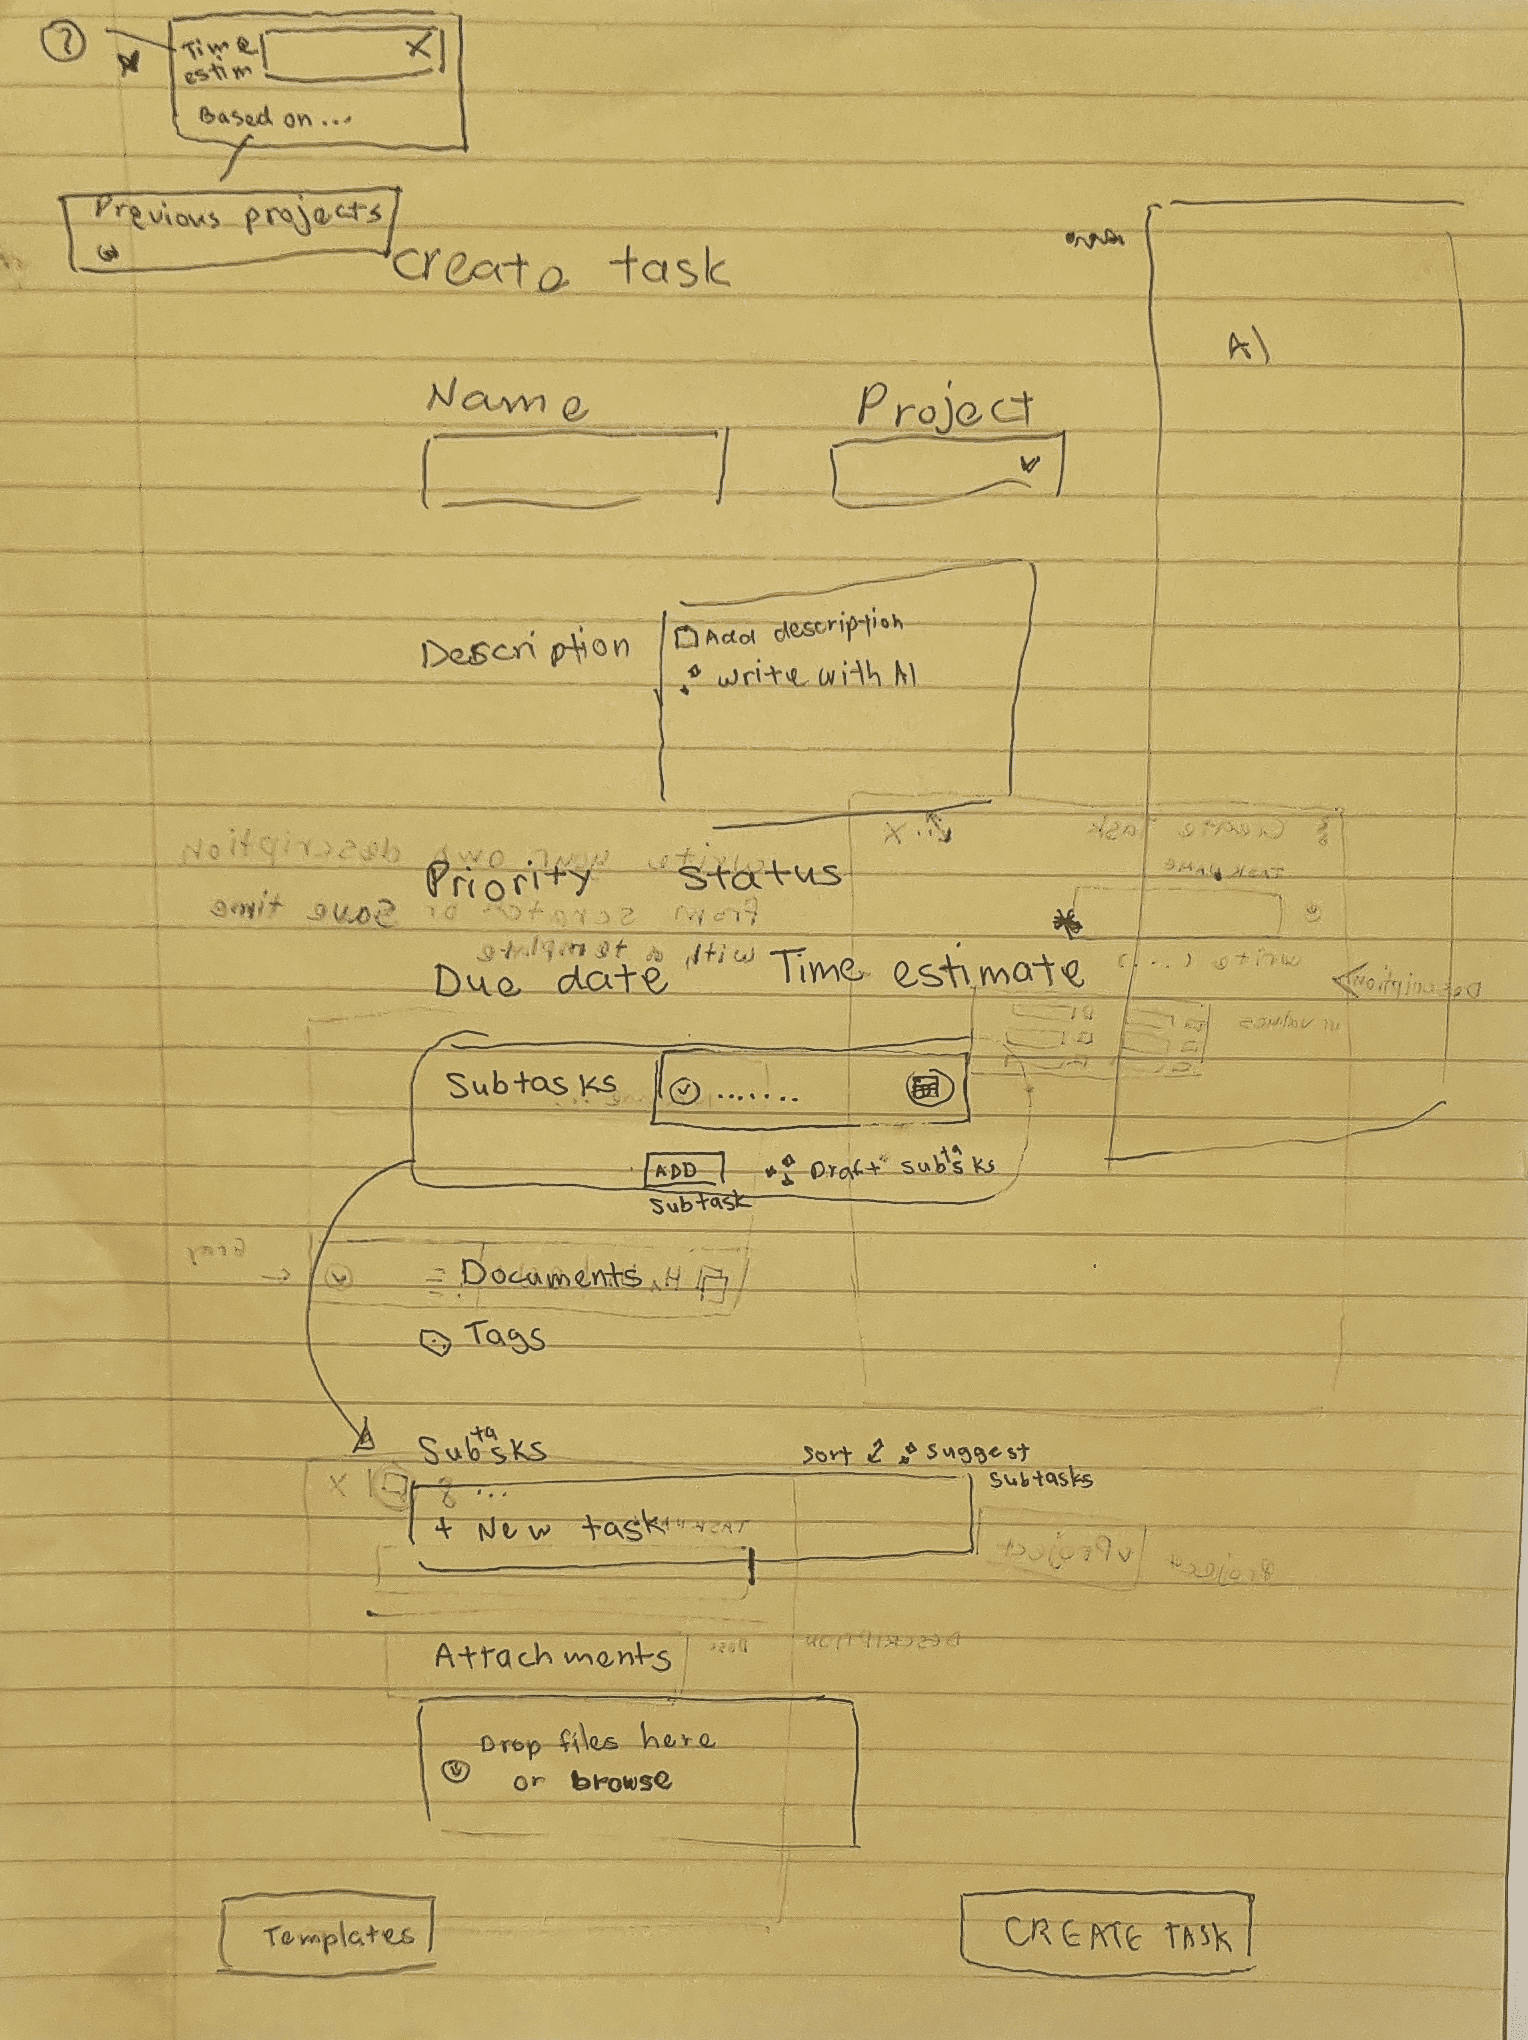 ?
Time
estim X
Based on...
Previous projects
create task
AI
Name Project
Description
Add description
write with AI
Priority Status
Due date Time estimate
Subtasks .......
ADD Draft subtasks
Subtask
Documents
Tags
Subtasks Sort Suggest
Subtasks
...
+ New task
Attachments
Drop files here
or browse
Templates CREATE TASK